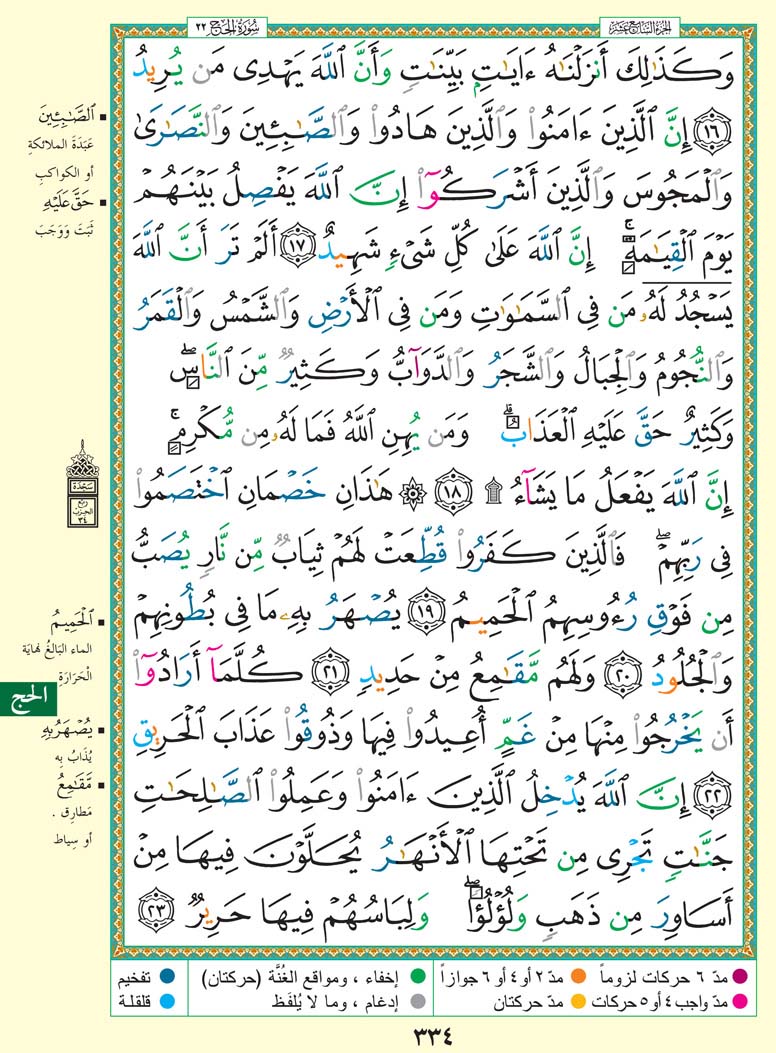 الجزء السابع عشر
سُورَةُ الحَجّ ٢٢
وَكَذَٰلِكَ أَنزَلْنَٰهُ ءَايَٰتٍۭ بَيِّنَٰتٍ وَأَنَّ ٱللَّهَ يَهْدِى مَن يُرِيدُ
﴿١٦﴾ إِنَّ ٱلَّذِينَ ءَامَنُوا۟ وَٱلَّذِينَ هَادُوا۟ وَٱلصَّٰبِـِٔينَ وَٱلنَّصَٰرَىٰ
وَٱلْمَجُوسَ وَٱلَّذِينَ أَشْرَكُوٓا۟ إِنَّ ٱللَّهَ يَفْصِلُ بَيْنَهُمْ
يَوْمَ ٱلْقِيَٰمَةِ ۚ إِنَّ ٱللَّهَ عَلَىٰ كُلِّ شَىْءٍ شَهِيدٌ ﴿١٧﴾ أَلَمْ تَرَ أَنَّ ٱللَّهَ
يَسْجُدُ لَهُۥ مَن فِى ٱلسَّمَٰوَٰتِ وَمَن فِى ٱلْأَرْضِ وَٱلشَّمْسُ وَٱلْقَمَرُ
وَٱلنُّجُومُ وَٱلْجِبَالُ وَٱلشَّجَرُ وَٱلدَّوَآبُّ وَكَثِيرٌ مِّنَ ٱلنَّاسِ ۖ
وَكَثِيرٌ حَقَّ عَلَيْهِ ٱلْعَذَابُ ۗ وَمَن يُهِنِ ٱللَّهُ فَمَا لَهُۥ مِن مُّكْرِمٍ ۚ
إِنَّ ٱللَّهَ يَفْعَلُ مَا يَشَآءُ ۩ ﴿١٨﴾ ۞ هَٰذَانِ خَصْمَانِ ٱخْتَصَمُوا۟
فِى رَبِّهِمْ ۖ فَٱلَّذِينَ كَفَرُوا۟ قُطِّعَتْ لَهُمْ ثِيَابٌ مِّن نَّارٍ يُصَبُّ
مِن فَوْقِ رُءُوسِهِمُ ٱلْحَمِيمُ ﴿١٩﴾ يُصْهَرُ بِهِۦ مَا فِى بُطُونِهِمْ
وَٱلْجُلُودُ ﴿٢٠﴾ وَلَهُم مَّقَٰمِعُ مِنْ حَدِيدٍ ﴿٢١﴾ كُلَّمَآ أَرَادُوٓا۟
أَن يَخْرُجُوا۟ مِنْهَا مِنْ غَمٍّ أُعِيدُوا۟ فِيهَا وَذُوقُوا۟ عَذَابَ ٱلْحَرِيقِ
﴿٢٢﴾ إِنَّ ٱللَّهَ يُدْخِلُ ٱلَّذِينَ ءَامَنُوا۟ وَعَمِلُوا۟ ٱلصَّٰلِحَٰتِ
جَنَّٰتٍ تَجْرِى مِن تَحْتِهَا ٱلْأَنْهَٰرُ يُحَلَّوْنَ فِيهَا مِنْ
أَسَاوِرَ مِن ذَهَبٍ وَلُؤْلُؤًا ۖ وَلِبَاسُهُمْ فِيهَا حَرِيرٌ ﴿٢٣﴾
ٱلصَّٰبِـِٔينَ
عَبَدَةَ الملائكةِ
أو الكواكبِ
حَقَّ عَلَيْهِ
ثَبَتَ وَوَجَبَ
سَجدَة
ربع
الحزب
٣٤
ٱلْحَمِيمُ
الماء البَالغُ نهايَة
الْحَرَارَةِ
الحج
يُصْهَرُ بِهِ
يُذَابُ به
مَّقَٰمِعُ
مَطارِق .
أو سِياط
مدّ ٦ حركات لزوماً
مدّ ٢ أو ٤ أو ٦ جوازاً
إخفاء ، ومواقع الغُنَّة (حركتان)
تفخيم
مدّ واجب ٤ أو ٥ حركات
مدّ حركتان
إدغام ، وما لا يُلفَظ
قلقلة
٣٣٤